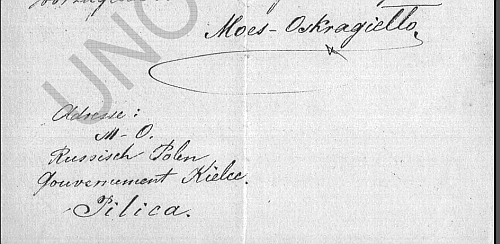 Moes-Oskragiełło.
Adresse:
M-O.
Russisch Polen
Gouvernement Kielce.
Pilica.